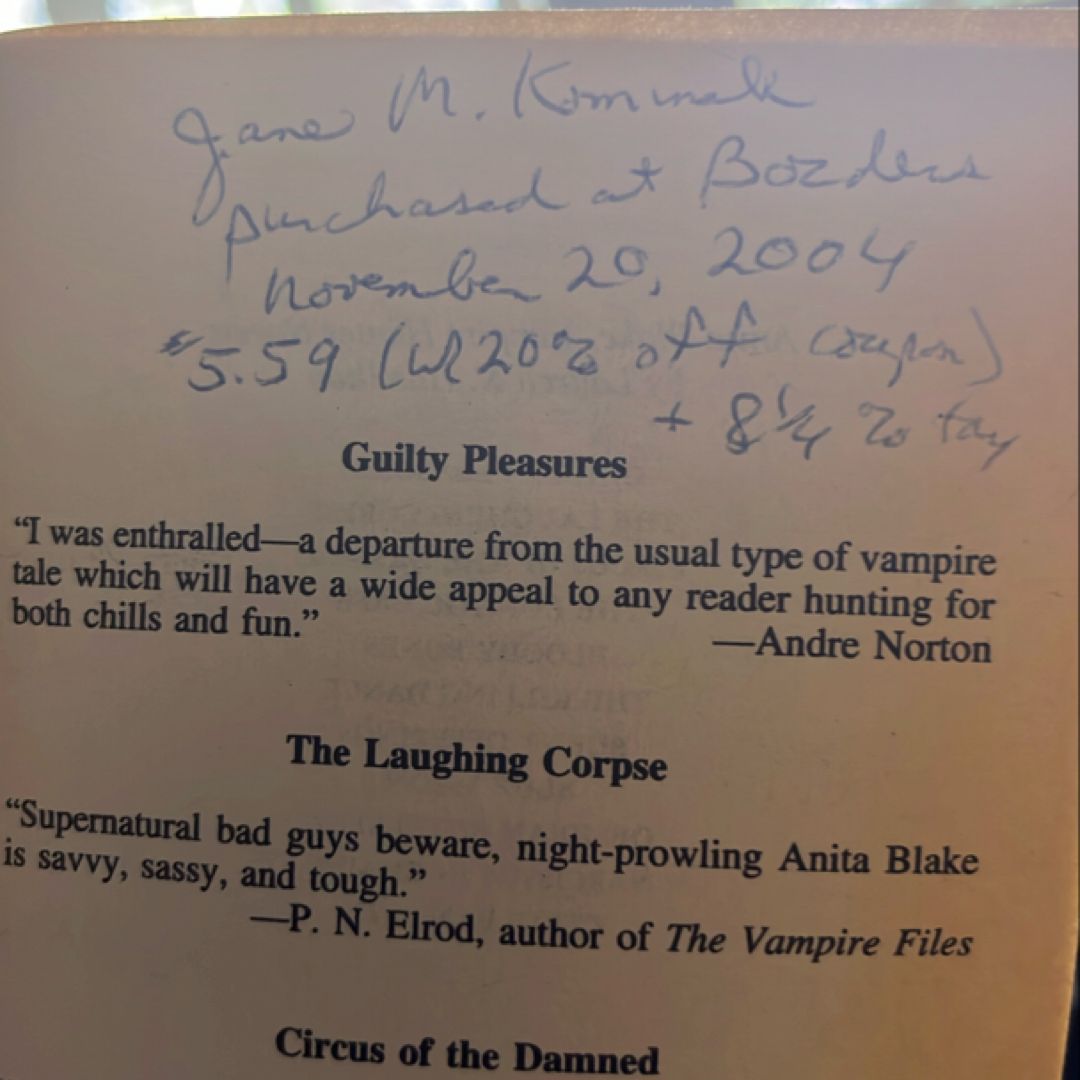 Jane M.
purchased at Borders
November 20, 2004
$5.59 (w/ 20% off coupon)
+ 8 1/4 % tax
Guilty Pleasures
“I was enthralled—a departure from the usual type of vampire
tale which will have a wide appeal to any reader hunting for
both chills and fun.”
—Andre Norton
The Laughing Corpse
“Supernatural bad guys beware, night-prowling Anita Blake
is savvy, sassy, and tough.”
—P. N. Elrod, author of The Vampire Files
Circus of the Damned